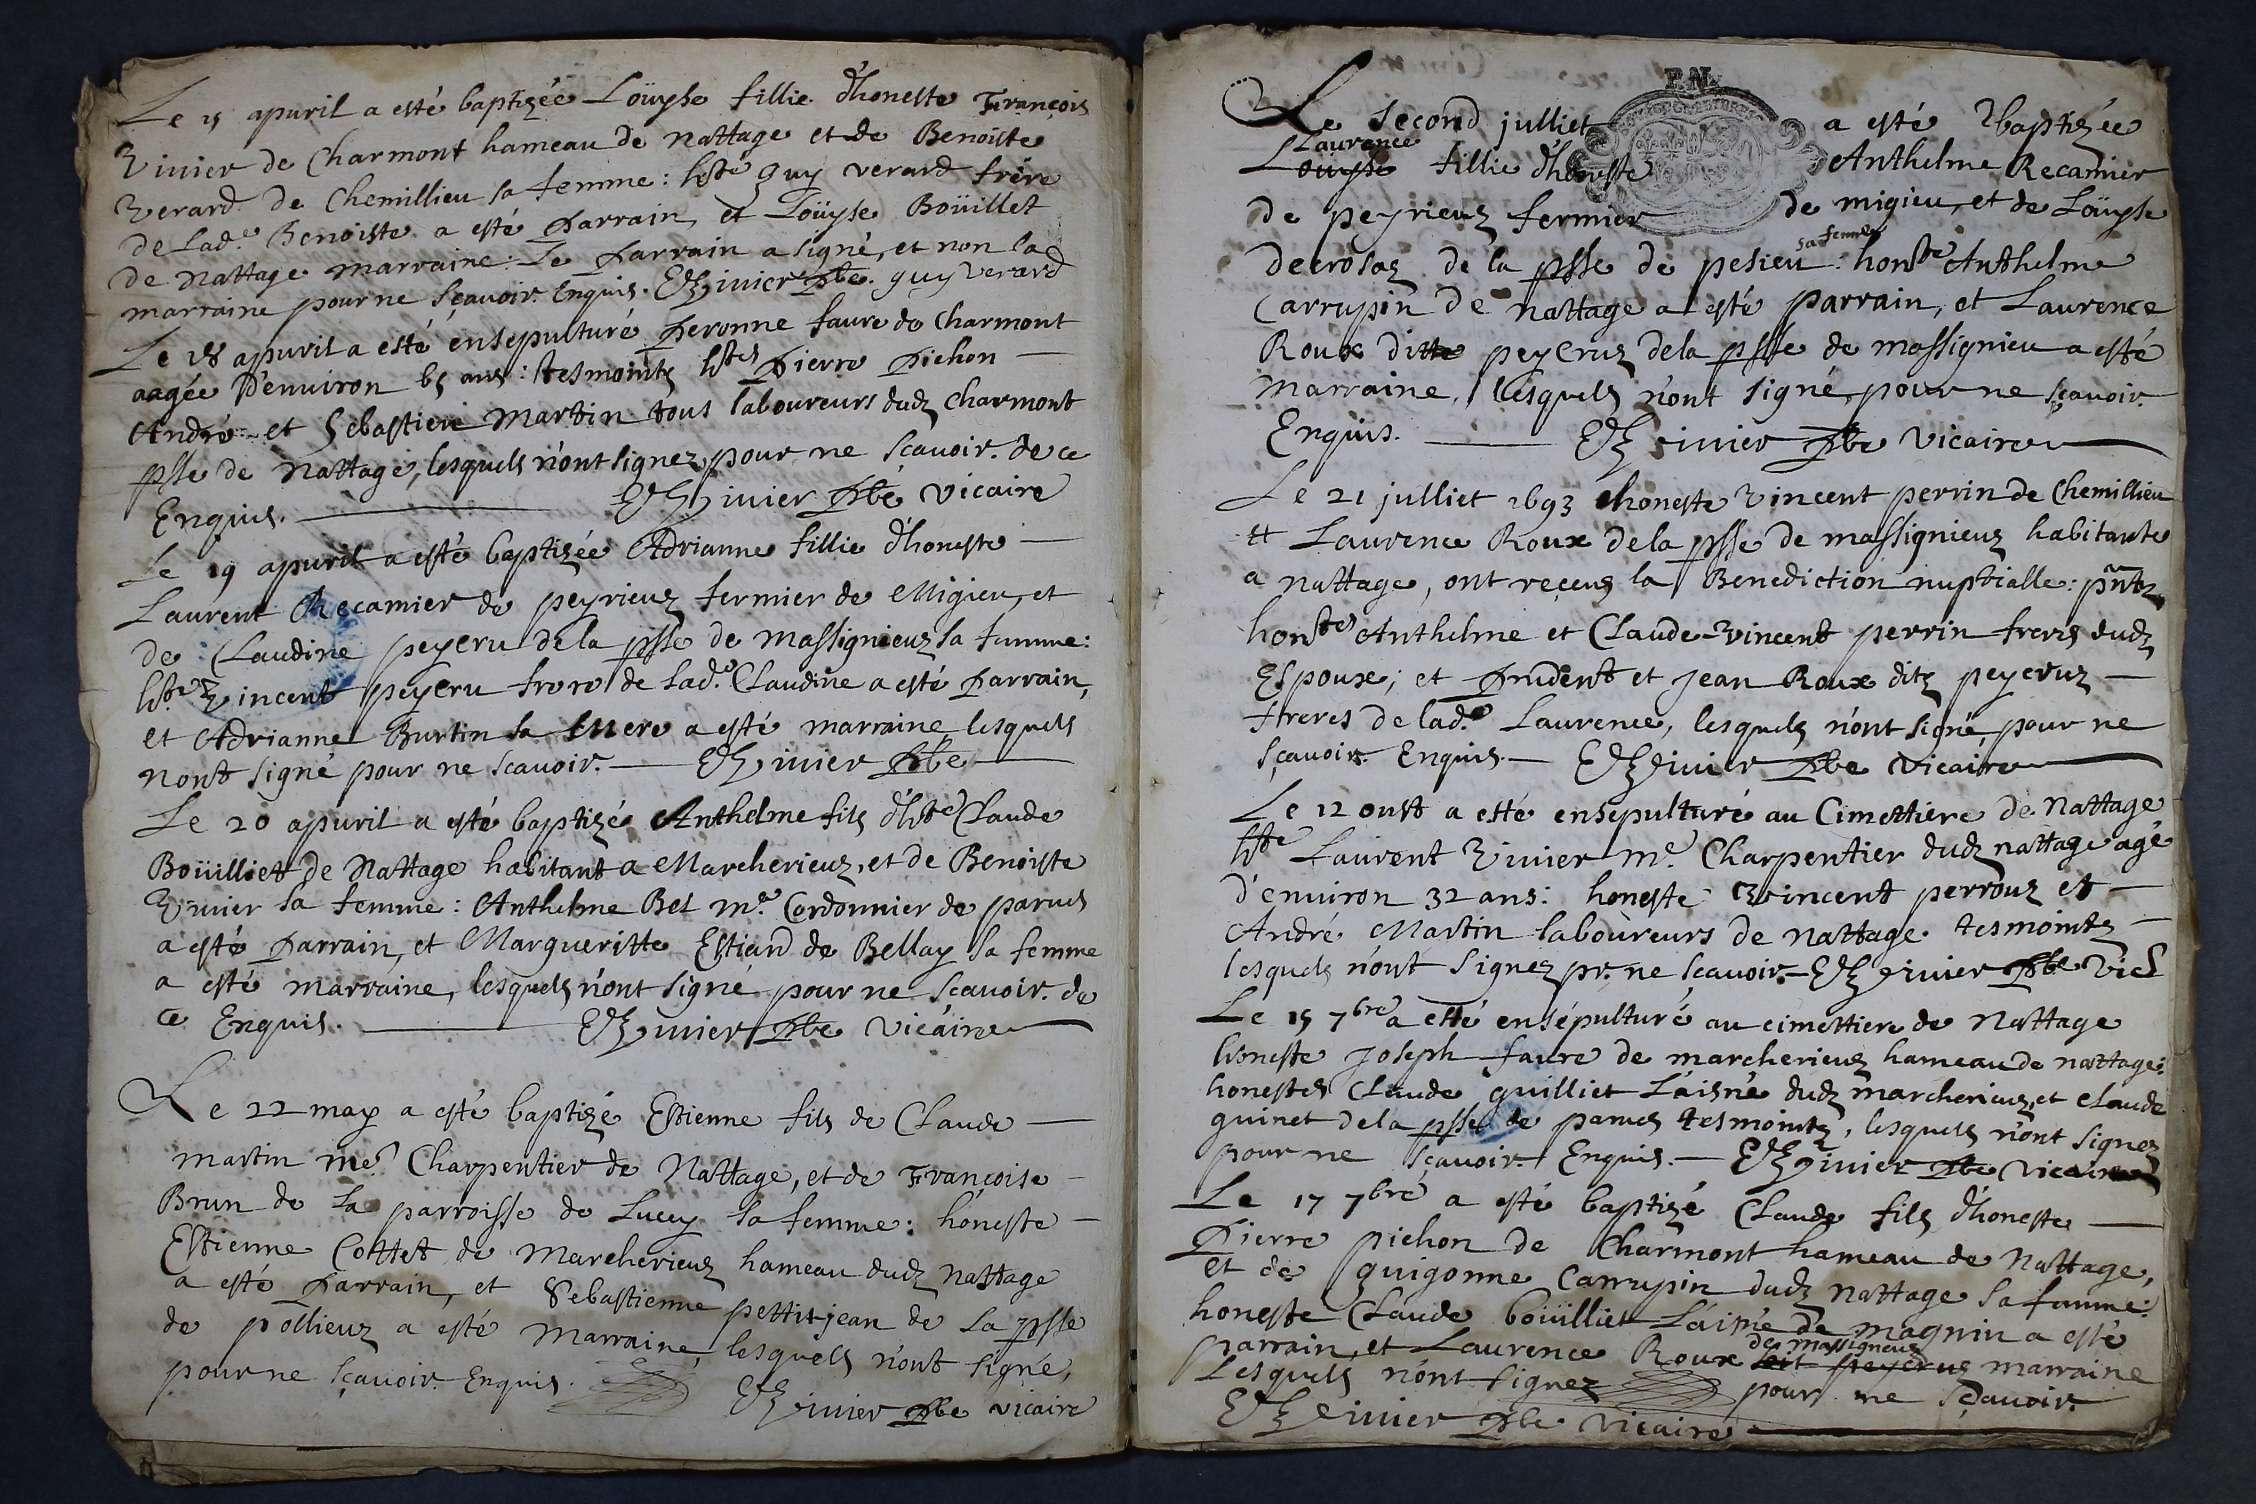 Le 15 apuril a esté baptizée Loüyse fillie d'honeste François
Viuier de Charmont hameau de nattage et de Benoiste
Verard de Chemillieu sa femme: hste guy verard frère
de Lad.e Benoiste a esté Parrain, et Loüyse Boüillet
de nattage marraine: Le Parrain a signé, et non la
marraine pour ne sçauoir Enquis. Viuier Pbe. guy verard
Le 18 apuril a esté ensepulturé Peronne faure de Charmont
aagée d'enuiron 65 ans: tesmointz hstes Pierre Pichon
André et Sebastien Martin tous laboureurs dudz Charmont
psse de nattage, lesquels n'ont signez pour ne sçauoir. de ce
Enquis. Viuier Pbe vicaire
Le 19 apuril a esté baptizée Adrianne fillie d'honeste
Laurent Recamier de peyrieuz fermier de Migieu, et
de Claudine peyeru de la psse de massignieuz sa femme:
hste Vincent peyeru frere de lad.e Claudine a esté Parrain,
et Adrianne Burtin sa Mere a esté marraine lesquels
n'ont signé pour ne scauoir. Viuier Pbe
Le 20 apuril a esté baptizé Anthelme fils d'hste Claude
Boüilliet de Nattage habitant a Marcherieuz, et de Benoiste
Viuier sa femme: Anthelme Bet m.e Cordonnier de parues
a esté Parrain, et Margueritte Estiard de Bellay sa femme
a esté marraine, lesquels n'ont signé pour ne sçauoir. de
ce Enquis. Viuier Pbe vicaire
Le 22 may a esté baptizé Estienne fils de Claude
martin me. Charpentier de Nattage, et de Françoise
Brun de la parroisse de Lucey sa femme: honeste
Estienne Cottet de Marcherieuz hameau dudz nattage
a esté Parrain, et Sebastienne pettit-jean de La psse
de pollieuz a esté Marraine, lesquels n'ont signé,
pour ne sçauoir Enquis. Viuier Pbe vicaire
P.N.
Le second julliet a esté baptizée
Laurence
Loüyse fillie d'honeste Anthelme Recamier
de peyrieuz fermier de migieu, et de Loüyse
sa femme
decrosaz de la psse de pesieu: honste Anthelme
Carrypin de nattage a esté parrain, et Laurence
Roux ditte peyeruz de la psse de massignieu a esté
Marraine, lesquels n'ont signé pour ne sçauoir
Enquis. Viuier Pbe Vicaire
Le 21 julliet 1693 honeste Vincent perrin de Chemillieu
et Laurence Roux de la psse de massignieuz habitante
a nattage, ont reçeuz la Benediction nuptialle: pntz
honstes Anthelme et Claude-Vincent perrin freres dudz
Espoux; et Prudent et Jean Roux ditz peyeruz
freres de lad.e Laurence, lesquels n'ont signé, pour ne
sçauoir. Enquis. Viuier Pbe vicaire
Le 12 oust a esté ensepulturé au Cimettiere de Nattage
hste Laurent Viuier m.e Charpentier dudz nattage agé
d'enuiron 32 ans: honeste Vincent perrouz et
André Martin laboureurs de nattage tesmointz
lesquels n'ont signez pr. ne sçauoir. Viuier Pbe Vic
Le 15 7bre a esté ensépulturé au cimettiere de Nattage
honeste Joseph faure de marcherieuz hameau de nattage:
honestes Claude guilliet L'aisné dudz marcherieuz, et Claude
guinet de la psse de parues tesmointz, lesquels n'ont signez
pour ne sçauoir. Enquis. Viuier Pbe vicaire
Le 17 7bre a esté baptizé Claude fils d'honeste
Pierre pichon de Charmont hameau de Nattage,
et de guigonne Carrypin dudz nattage sa femme:
honeste Claude boüilliet L'aisné de magnin a esté
de massignieuz
parrain, et Laurence Roux dit peyeruz marraine
Lesquels n'ont signez pour ne sçauoir.
Viuier Pbe vicaire